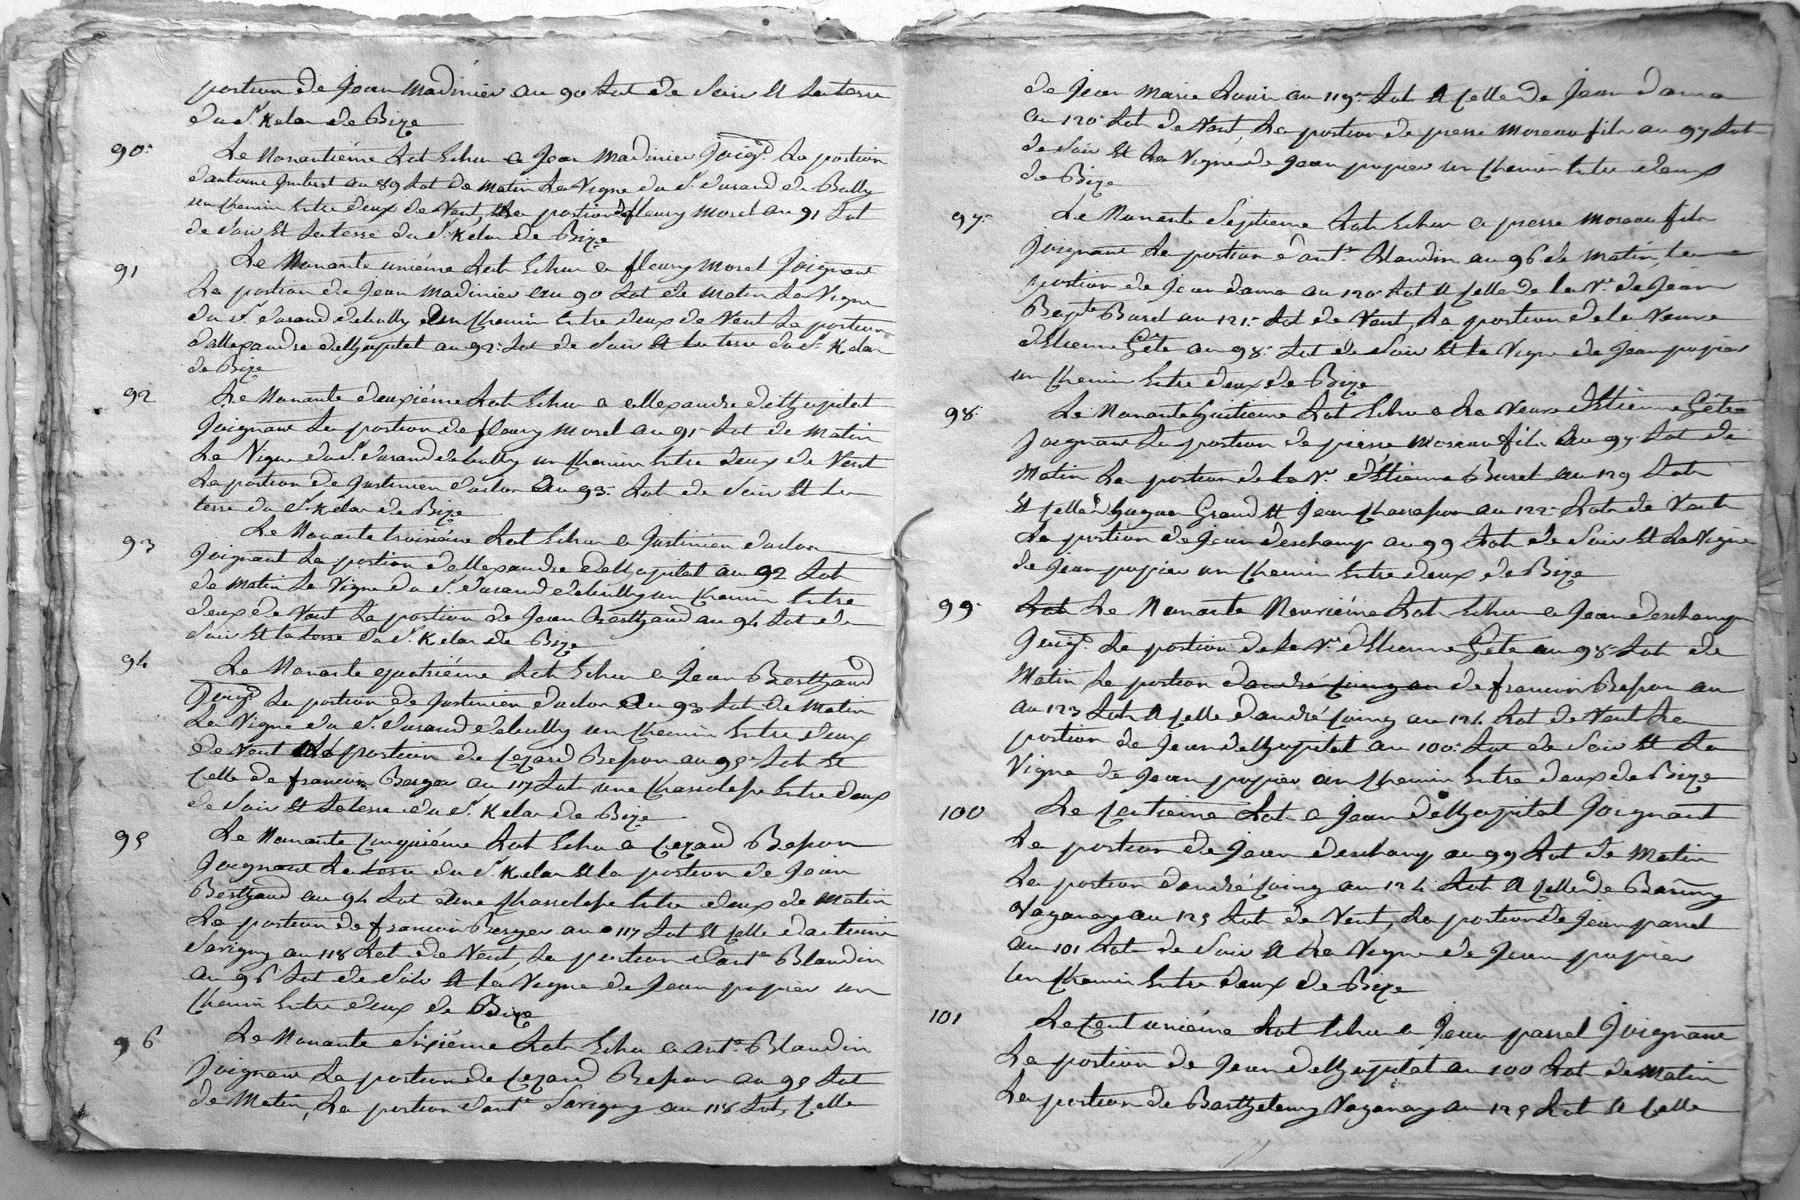 portion de Jean Madinier au 90 Lot de Soir et La terre
du Sr Kelar de Bize
90. Le Nonantiéme Lot Echu a Jean Madinier Joigt La portion
d'antoine Imbert au 89 Lot de Matin La Vigne du Sr durand de Bully
un Chemin Entre deux de Vent, La portion de fleury Morel au 91 Lot
de Soir Et La terre du Sr Kelar de Bize
91 Le Nonante uniéme Lot Echu a fleury Morel Joignant
La portion de Jean Madinier au 90 Lot de Matin La Vigne
du Sr durand debully un Chemin Entre deux de Vent La portion
d'allexandre delhopital au 92. Lot de Soir Et La terre du Sr Kelar
de Bize
92 Le Nonante deuxiéme Lot Echu a allexandre delhopital
Joignant La portion de fleury Morel au 91 Lot de Matin
La Vigne du Sr durand debully un Chemin Entre deux de Vent
La portion de Justinien au 93. Lot de Soir Et La
terre du Sr Kelar de Bize
93 Le Nonante troisiéme Lot Echu a Justinien
Joignant La portion d'allexandre delhopital au 92 Lot
de Matin La Vigne du Sr durand debully un Chemin Entre
deux de Vent La portion de Jean Berthaud au 94 Lot de
Soir Et La terre du Sr Kelar de Bize
94 Le Nonante quatriéme Lot Echu a Jean Berthaud
Joigt La portion de Justinien au 93 Lot de Matin
La Vigne du Sr durand debully un Chemin Entre deux
de Vent La portion de Cezard Besson au 95 Lot Et
Celle de francois Berger au 117 Lot une Entre deux
de Soir Et La terre du Sr Kelar de Bize
95 Le Nonante Cinquiéme Lot Echu a Cezard Besson
Joignant La terre du Sr Kelar Et la portion de Jean
Berthaud au 94 Lot une Entre deux de Matin
La portion de francois Berger au 117 Lot Et Celle dantoine
Savigny au 118 Lot de Vent, La portion d'ante Blandin
au 96 Lot de Soir Et La Vigne de Jean papier un
Chemin Entre deux de Bize
96 Le Nonante Sixiéme Lot Echu a ante Blandin
Joignant La portion de Cezard Besson au 95 Lot
de Matin, La portion d'ante Savigny au 118 Lot, Celle
de Jean Marie au 119. Lot Et Celle de Jean dama
au 120. Lot de Vent, La portion de pierre Moreau fils au 97 Lot
de Soir Et La Vigne de Jean papier un Chemin Entre deux
de Bize
97. Le Nonante Septieme Lot Echu a pierre Moreau fils
Joignant La portion d'ante Blandin au 96 de Matin, La
portion de Jean dama au 120. Lot Et Celle de la Ve de Jean
Bapte Buret au 121. Lot de Vent, La portion de la Veuve
d'Etienne Gête au 98. Lot de Soir Et la Vigne de Jean papier
un Chemin Entre deux de Bize
98. Le Nonante huitieme Lot Echu a La Veuve d'Etienne Gête
Joignant La portion de pierre Moreau fils au 97 Lot de
Matin La portion de la Ve d'Etienne Buret au 129 Lot
Et Celle Grand Et Jean au 122. Lot de Vent
La portion de Jean deschamp au 99 Lot de Soir Et La Vigne
de Jean papier un Chemin Entre deux de Bize
99. Lot Le Nonante Neuviéme Lot Echu a Jean deschamp
Joigt La portion de la Ve d'Etienne Gete au 98. Lot de
Matin La portion d'andré Coing au de francois Besson au
au 123 Lot Et Celle d'andré Coing au 124 Lot de Vent La
portion de Jean delhopital au 100. Lot de Soir Et La
Vigne de Jean papier un Chemin Entre deux de Bize
100 Le Centieme Lot a Jean delhopital Joignant
La portion de Jean deschamp au 99 Lot de Matin
La portion d'andré Coing au 124 Lot Et Celle de
Vaganay au 125 Lot de Vent, La portion de Jean parrel
au 101 Lot de Soir Et La Vigne de Jean papier
un Chemin Entre deux de Bize
101 Le Cent uniéme Lot Echu a Jean parrel Joignant
La portion de Jean delhopital au 100 Lot de Matin
La portion de Barthelemy Vaganay au 125 Lot Et Celle